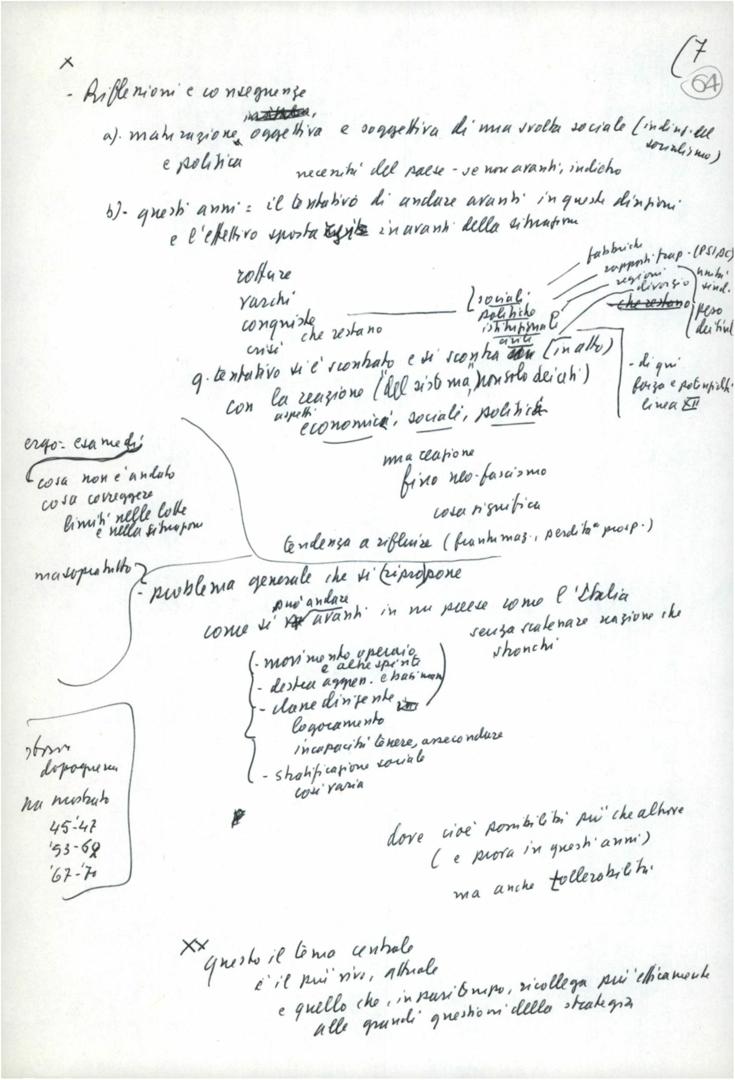 (7
64
x
- Riflessioni e conseguenze
a). maturazione, oggettiva e soggettiva di una svolta sociale (indisp. del socialismo)
e politica
necessità del paese - se non avanti, indietro
b)- questi anni = il tentativo di andare avanti in queste direzioni
e l'effettivo sposta in avanti della situazione
rotture
varchi
conquiste che restano
crisi
sociali
politiche
istituzionali
fabbriche
rapporti rap. (PSI/DC)
regioni
divorzio
che restano
unità sind.
peso
q. tentativo si è scontrato e si scontra (in atto)
con la reazione ("del sistema", non solo dei ceti)
aspetti
economici, sociali, politici
- di qui
forza e potenzialità
linea XII
una reazione
fino neo-fascismo
cosa significa
ergo = esame di
- cosa non è andato
cosa correggere
limiti nelle lotte
e nella situazione
tendenza a rifluire (frantumaz., perdita prosp.)
ma sopratutto
- problema generale che si (ri)propone
può andare
come si avanti in un paese come l'Italia
senza scatenare reazione che
stronchi
- movimento operaio
e altre spinte
- destra aggress. e
- classe dirigente
logoramento
incapacità tenere, assecondare
- stratificazione sociale
così varia
storia
dopoguerra
ha mostrato
45-47
'53-62
'67-'70
dove cioè possibilità più che altrove
(e prova in questi anni)
ma anche tollerabilità.
xx
questo il tema centrale
è il più vivo, attuale
e quello che, in pari tempo, ricollega più efficacemente
alle grandi questioni della strategia